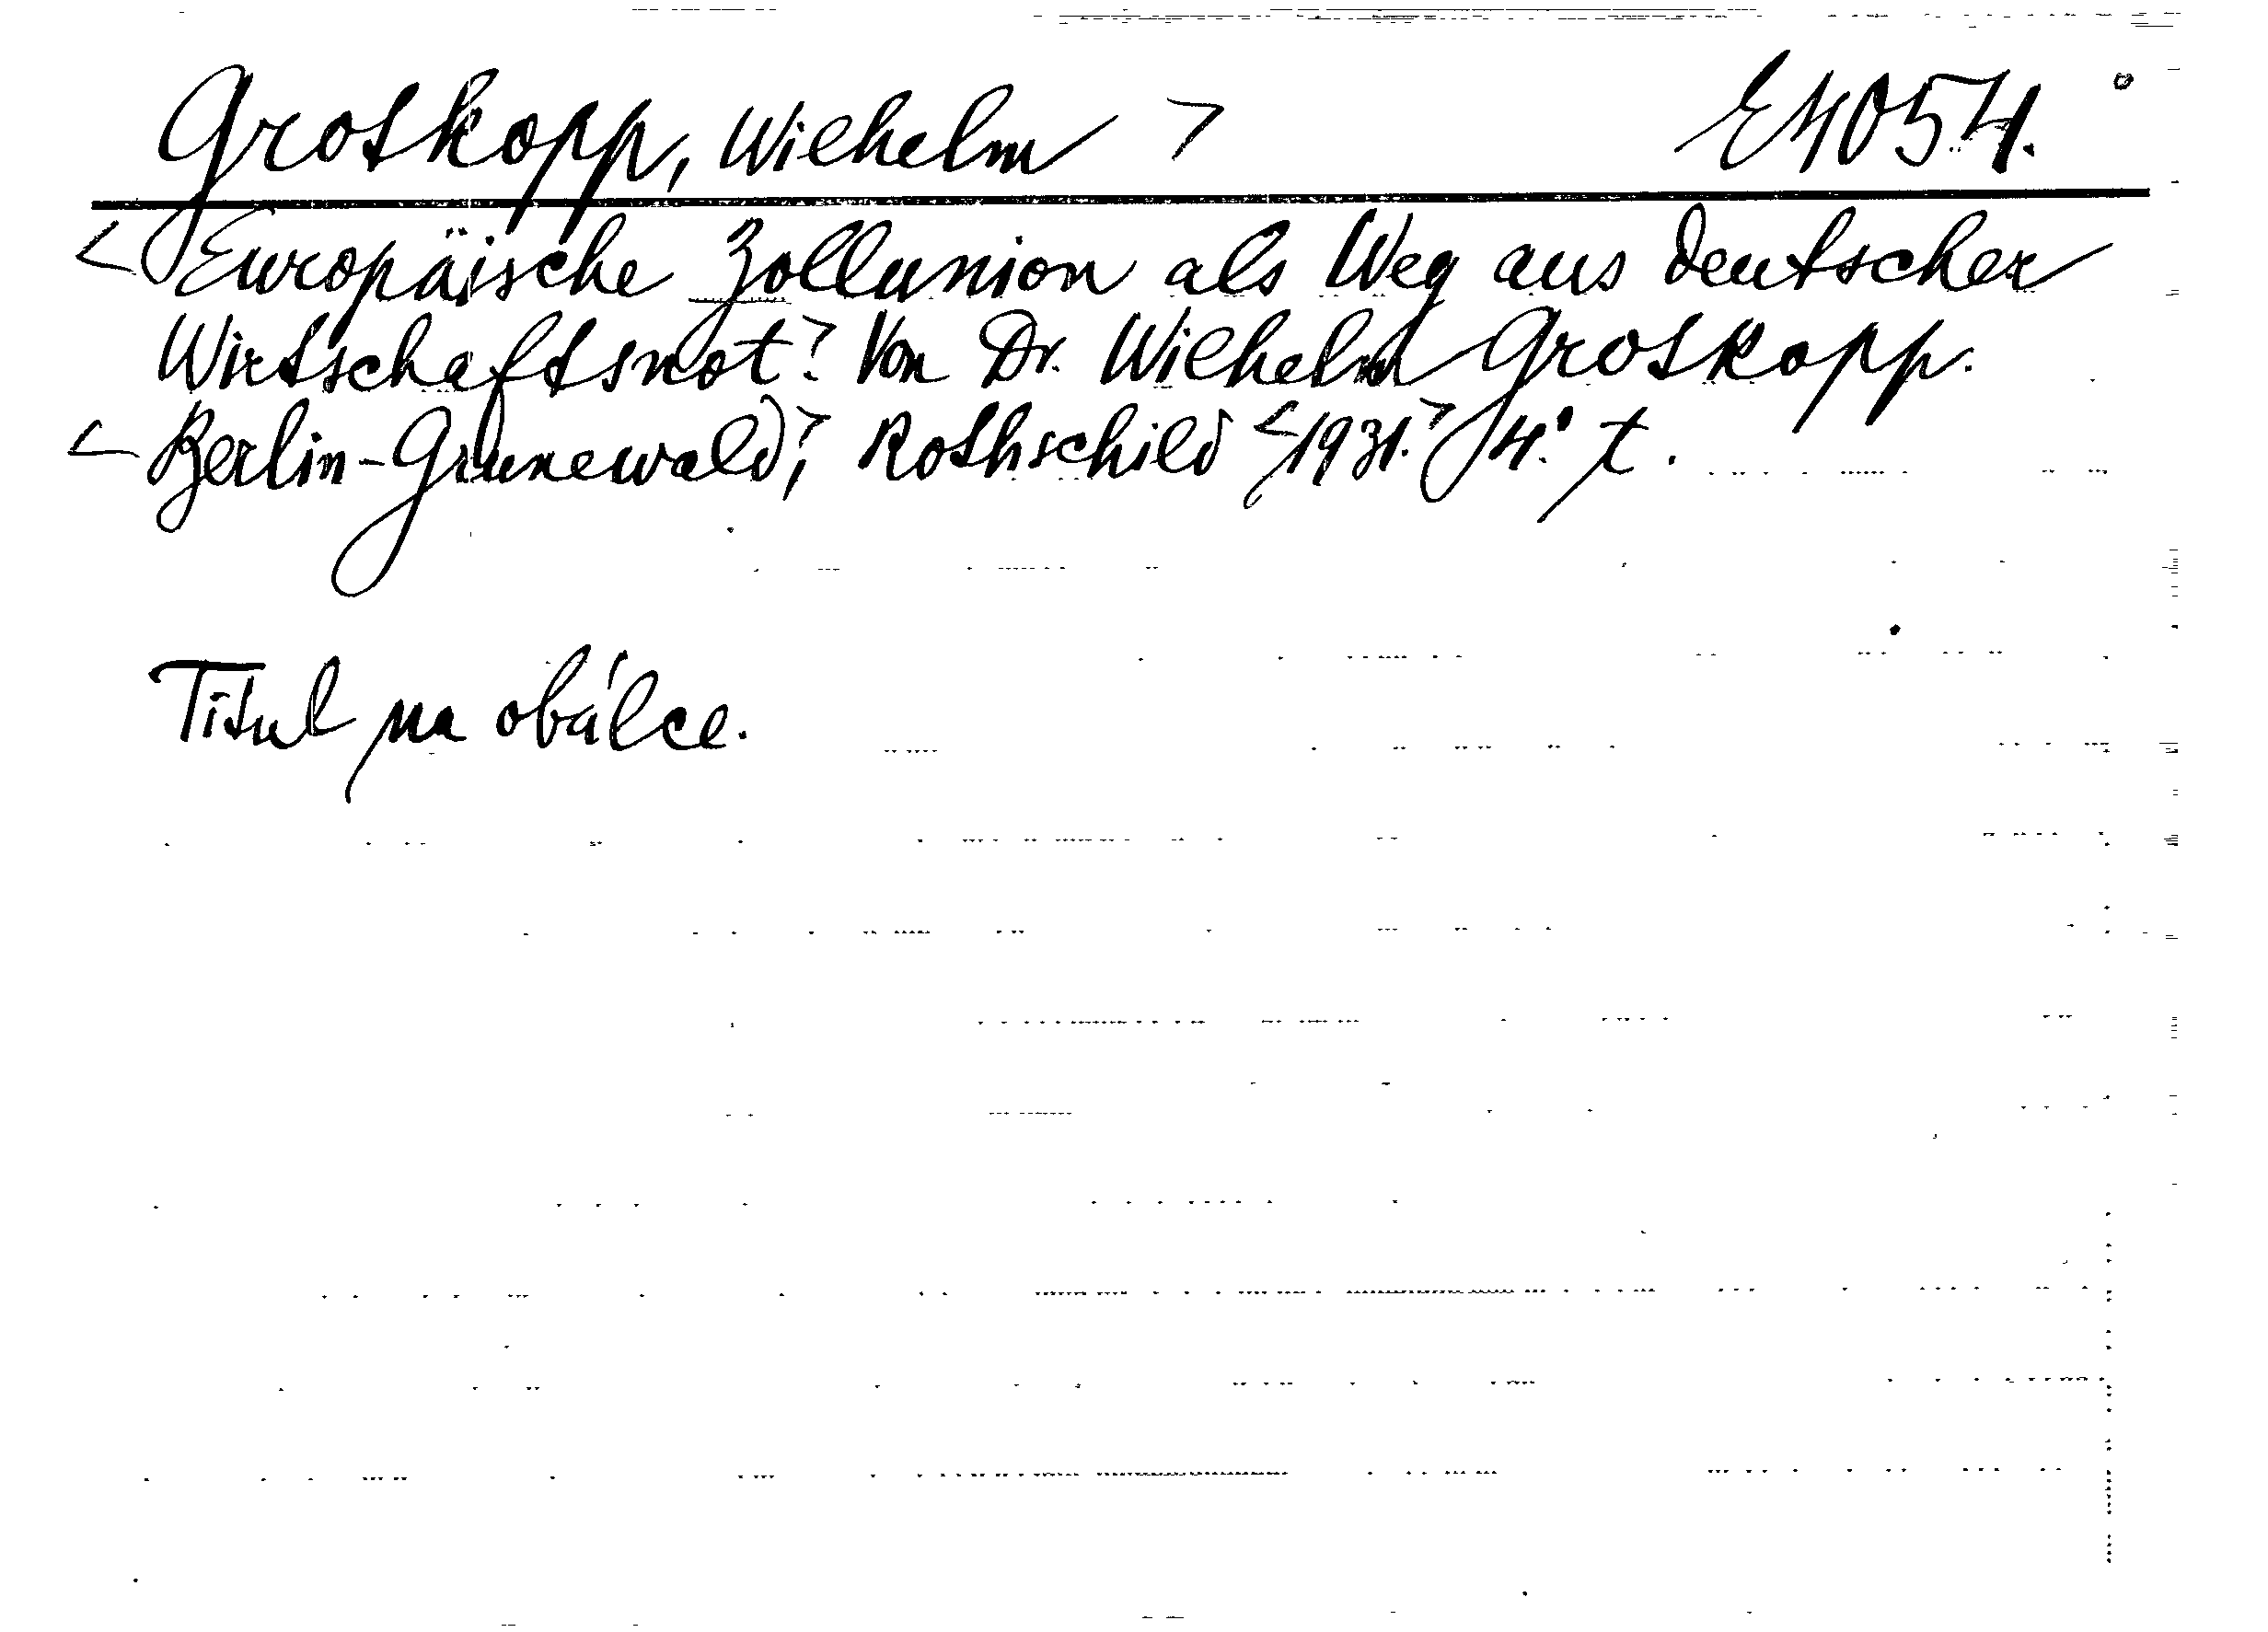 Groskopp, Wilhelm > E4054.
< Europäische Zollunion als Weg aus deutscher
Wirtschaftsnot? Von Dr. Wilhelm Groskopp.
< Berlin-Grunewald,> Rothschild <1931.> 4.° t.
Titul na obálce.